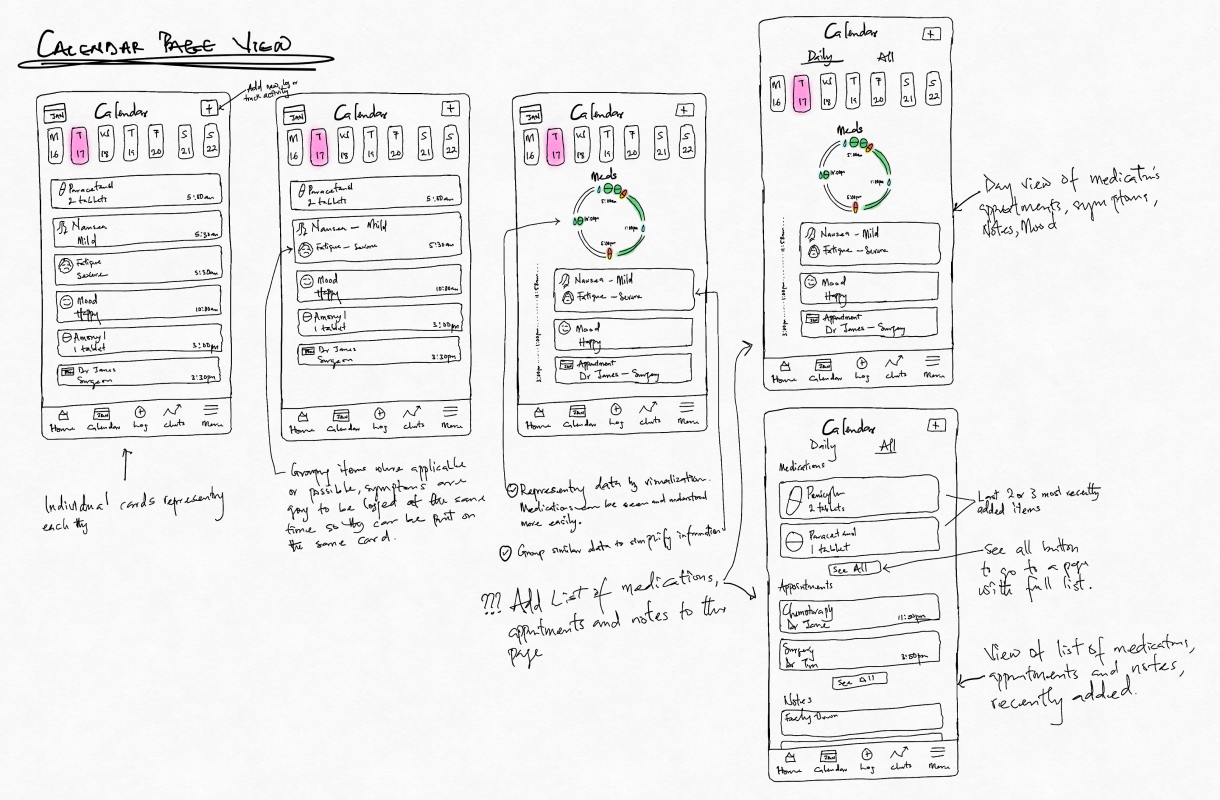 CALENDAR PAGE VIEW
Add new log or
track activity
JAN
Calendar
+
M T W T F S S
16 17 18 19 20 21 22
Paracetamol
2 tablets
5:00am
Nausea
Mild
5:30am
Fatigue
Severe
5:30am
Mood
Happy
10:00am
1 tablet
3:00pm
Dr James
Surgeon
3:30pm
Home Calendar Log charts Menu
Individual cards representing
each
JAN
Calendar
+
M T W T F S S
16 17 18 19 20 21 22
Paracetamol
2 tablets
5:00am
Nausea — Mild
Fatigue — Severe
5:30am
Mood
Happy
10:00am
1 tablet
3:00pm
Dr James
Surgeon
3:30pm
Home Calendar Log charts Menu
Grouping items where applicable
or possible, symptoms are
going to be logged at the same
time so they can be put on
the same card.
JAN
Calendar
+
M T W T F S S
16 17 18 19 20 21 22
Meds
5:00am
10:00pm
1:00pm
6:00pm
Nausea - Mild
Fatigue - Severe
Mood
Happy
Appointment
Dr James - Surgery
Home Calendar Log charts Menu
Representing data by visualization.
Medications can be seen and understood
more easily.
Group similar data to simplify information
??? Add List of medications,
appointments and notes to this
page
Calendar
+
Daily All
M T W T F S S
16 17 18 19 20 21 22
Meds
5:00am
10:00pm
1:00pm
6:00pm
Nausea - Mild
Fatigue - Severe
Mood
Happy
Appointment
Dr James - Surgery
Home Calendar Log charts Menu
Day view of medications
appointments, symptoms,
Notes, Mood
Calendar
+
Daily All
Medications
2 tablets
Paracetamol
1 tablet
See All
Appointments
Chemotherapy
Dr Jane
11:00am
Surgery
Dr Tim
3:00pm
See All
Notes
Feeling Down
Home Calendar Log charts Menu
Last 2 or 3 most recently
added items
See all button
to go to a page
with full list.
View of list of medications,
appointments and notes,
recently added.